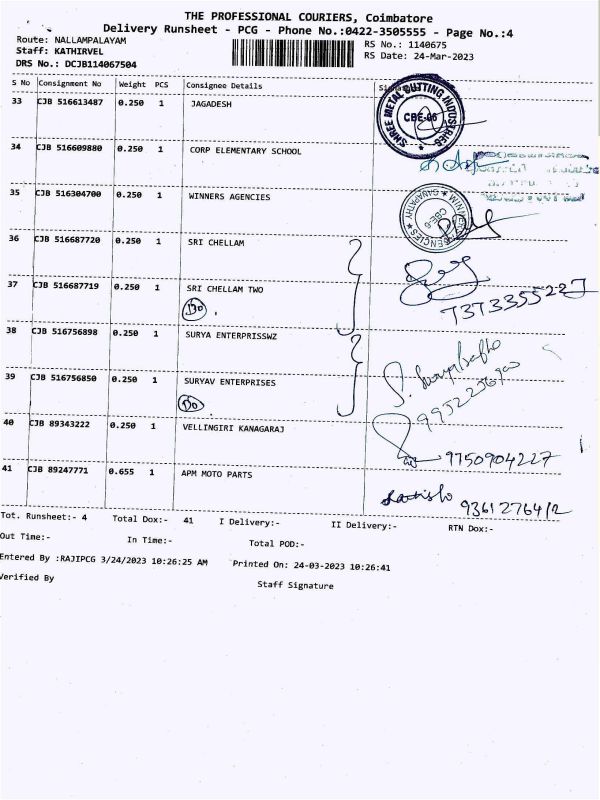 THE PROFESSIONAL COURIERS, Coimbatore
Delivery Runsheet - PCG - Phone No.:0422-3505555 - Page No.:4
Route: NALLAMPALAYAM
RS No.: 1140675
Staff: KATHIRVEL
RS Date: 24-Mar-2023
DRS No.: DCJB114067504
S No Consignment No Weight PCS Consignee Details
33 CJB 516613487 0.250 1 JAGADESH
SHREE METAL CUTTING INDUSTRIES
CBE-06
34 CJB 516609880 0.250 1 CORP ELEMENTARY SCHOOL
35 CJB 516304700 0.250 1 WINNERS AGENCIES
36 CJB 516687720 0.250 1 SRI CHELLAM
37 CJB 516687719 0.250 1 SRI CHELLAM TWO
7373355227
38 CJB 516756898 0.250 1 SURYA ENTERPRISSWZ
39 CJB 516756850 0.250 1 SURYAV ENTERPRISES
40 CJB 89343222 0.250 1 VELLINGIRI KANAGARAJ
9750904227
41 CJB 89247771 0.655 1 APM MOTO PARTS
Tot. Runsheet:- 4 Total Dox:- 41 I Delivery:- II Delivery:- RTN Dox:-
Out Time:- In Time:- Total POD:-
Entered By :RAJIPCG 3/24/2023 10:26:25 AM Printed On: 24-03-2023 10:26:41
Verified By Staff Signature